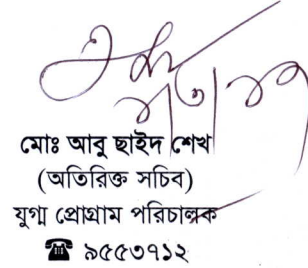 মোঃ আবু ছাইদ শেখ
(অতিরিক্ত সচিব)
যুগ্ম প্রোগ্রাম পরিচালক
☎ ৯৫৫৩৭১২